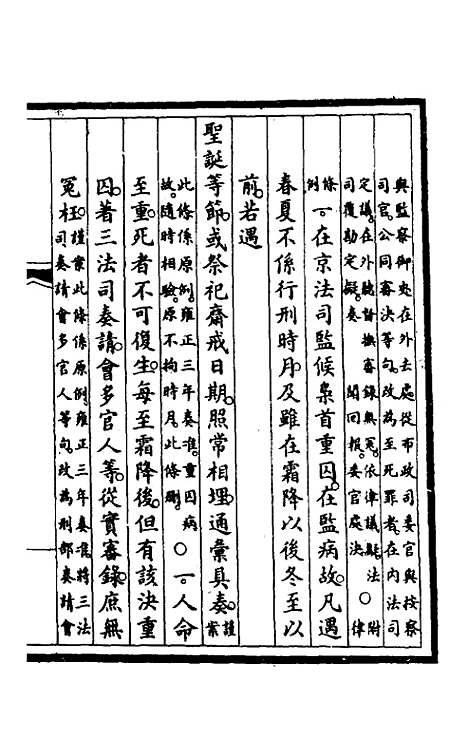 與監察御史在外去處從布政司委官與按察
司官。公同審決等句。改為至死罪者。在內法司
定議。在外聽督撫審錄無冤。依律議擬。法
司覆勘定擬。奏聞回報。委官處決。○附律
條例一。在京法司監候梟首重囚。在監病故。凡遇
春夏不係行刑時月。及雖在霜降以後冬至以
前。若遇
聖誕等節。或祭祀齋戒日期。照常相埋。通彙具奏。謹案
此條係原例。雍正三年奏准。重囚病
故。隨時相驗。原不拘時月。此條刪。○一。人命
至重。死者不可復生。每至霜降後。但有該決重
囚。著三法司奏請。會多官人等。從實審錄。庶無
冤枉。謹案此條係原例。雍正三年奏准。將三法
司奏請會多官人等句。改為刑部奏請會